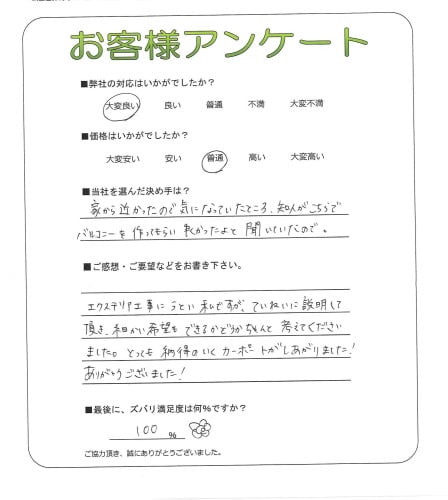 お客様アンケート
■弊社の対応はいかがでしたか？
大変良い 良い 普通 不満 大変不満
■価格はいかがでしたか？
大変安い 安い 普通 高い 大変高い
■当社を選んだ決め手は？
家から近かったので気になっていたところ、知人がこちらで
バルコニーを作ってもらい良かったよと聞いていたので。
■ご感想・ご要望などをお書き下さい。
エクステリア工事にうとい私ですが、ていねいに説明して
頂き、細かい希望もできるかどうかちゃんと考えてください
ました。とっても納得のいくカーポートがしあがりました！
ありがとうございました！
■最後に、ズバリ満足度は何％ですか？
100 %
ご協力頂き、誠にありがとうございました。